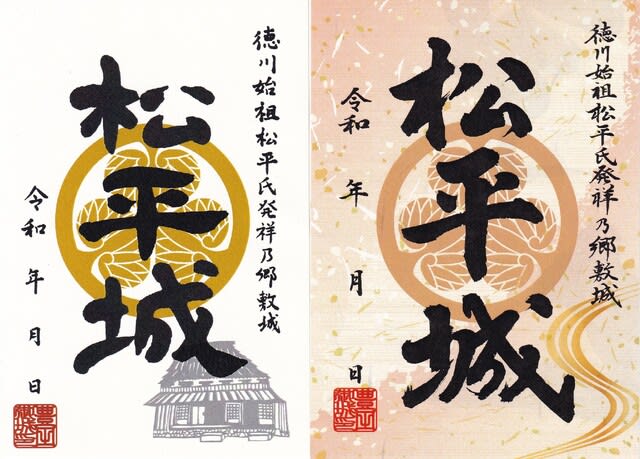 徳川始祖松平氏発祥乃郷敷城
松平城
令和 年 月 日
徳川始祖松平氏発祥乃郷敷城
松平城
令和 年 月 日